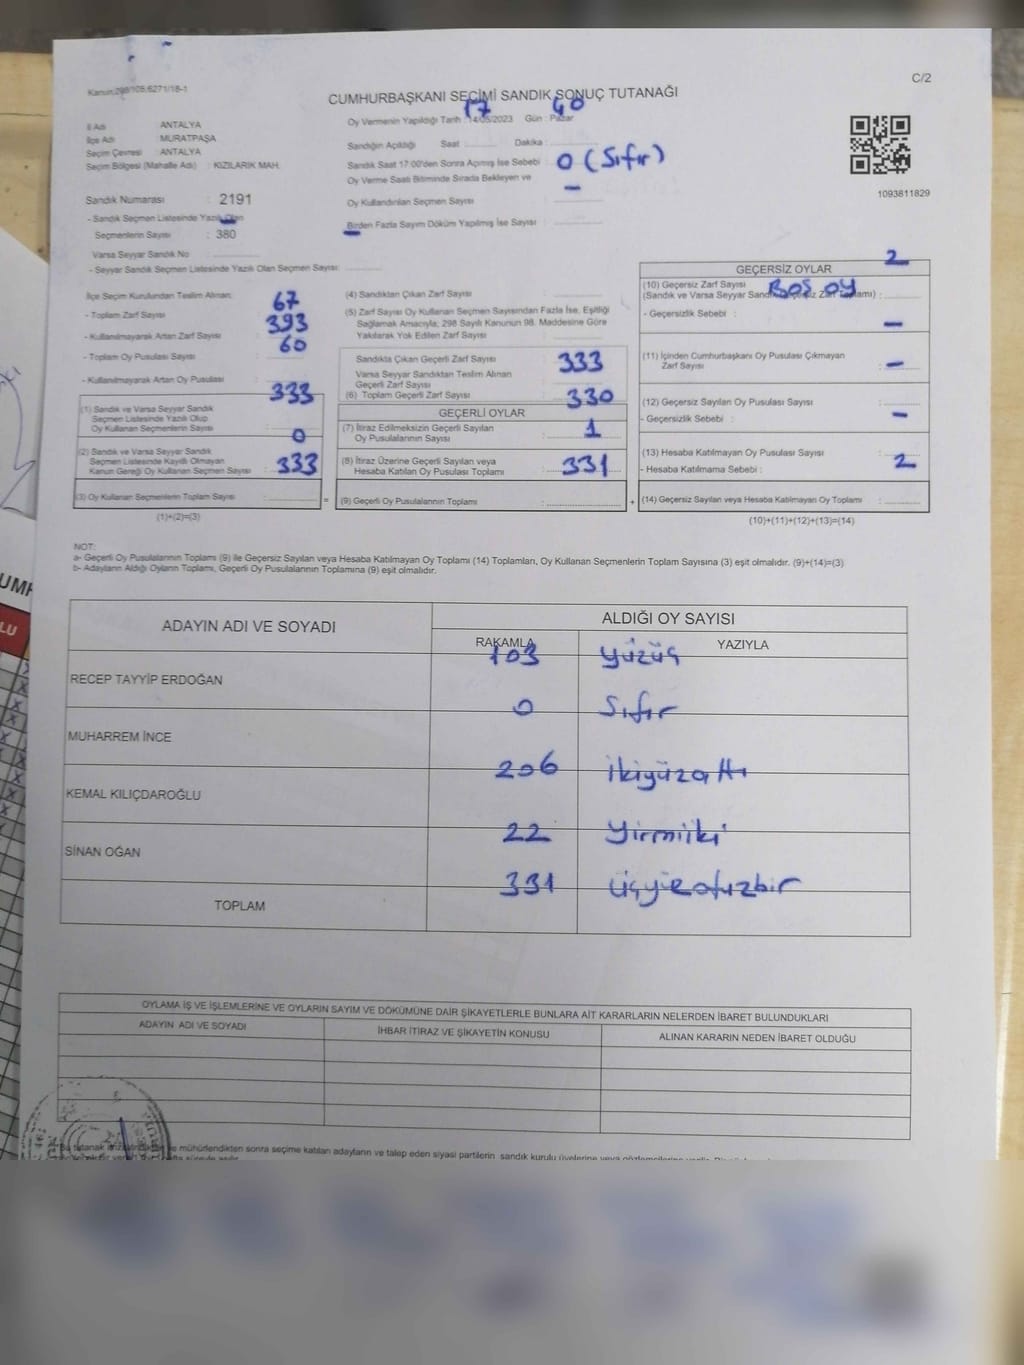 C/2
Kanun:298/109;6271/18-1
CUMHURBAŞKANI SEÇİMİ SANDIK SONUÇ TUTANAĞI
İl Adı : ANTALYA
İlçe Adı : MURATPAŞA
Seçim Çevresi : ANTALYA
Seçim Bölgesi (Mahalle Adı) : KIZILARIK MAH.
Sandık Numarası : 2191
- Sandık Seçmen Listesinde Yazılı Olan
Seçmenlerin Sayısı : 380
Varsa Seyyar Sandık No :
- Seyyar Sandık Seçmen Listesinde Yazılı Olan Seçmen Sayısı:
17 40
Oy Vermenin Yapıldığı Tarih : 14/05/2023 Gün : Pazar
Sandığın Açıldığı Saat : Dakika :
Sandık Saat 17:00'den Sonra Açılmış İse Sebebi :
0 (Sıfır)
Oy Verme Saati Bitiminde Sırada Bekleyen ve
Oy Kullandırılan Seçmen Sayısı :
—
Birden Fazla Sayım Döküm Yapılmış İse Sayısı :
1093811829
İlçe Seçim Kurulundan Teslim Alınan:
67
- Toplam Zarf Sayısı :
393
- Kullanılmayarak Artan Zarf Sayısı :
60
- Toplam Oy Pusulası Sayısı :
- Kullanılmayarak Artan Oy Pusulası :
333
(1) Sandık ve Varsa Seyyar Sandık
Seçmen Listesinde Yazılı Olup
Oy Kullanan Seçmenlerin Sayısı :
0
(2) Sandık ve Varsa Seyyar Sandık
Seçmen Listesinde Kayıtlı Olmayan
Kanun Gereği Oy Kullanan Seçmen Sayısı :
333
(3) Oy Kullanan Seçmenlerin Toplam Sayısı :
(1)+(2)=(3)
(4) Sandıktan Çıkan Zarf Sayısı :
(5) Zarf Sayısı Oy Kullanan Seçmen Sayısından Fazla İse, Eşitliği
Sağlamak Amacıyla, 298 Sayılı Kanunun 98. Maddesine Göre
Yakılarak Yok Edilen Zarf Sayısı :
Sandıkta Çıkan Geçerli Zarf Sayısı : 333
Varsa Seyyar Sandıktan Teslim Alınan
Geçerli Zarf Sayısı :
(6) Toplam Geçerli Zarf Sayısı : 330
=
GEÇERLİ OYLAR
(7) İtiraz Edilmeksizin Geçerli Sayılan
Oy Pusulalarının Sayısı : 1
(8) İtiraz Üzerine Geçerli Sayılan veya
Hesaba Katılan Oy Pusulası Toplamı : 331
(9) Geçerli Oy Pusulalarının Toplamı :
+
2
GEÇERSİZ OYLAR
(10) Geçersiz Zarf Sayısı BOŞ OY
(Sandık ve Varsa Seyyar Sandık Geçersiz Zarf Toplamı) :
- Geçersizlik Sebebi :
—
(11) İçinden Cumhurbaşkanı Oy Pusulası Çıkmayan
Zarf Sayısı : —
(12) Geçersiz Sayılan Oy Pusulası Sayısı :
- Geçersizlik Sebebi : —
(13) Hesaba Katılmayan Oy Pusulası Sayısı :
- Hesaba Katılmama Sebebi : 2
(14) Geçersiz Sayılan veya Hesaba Katılmayan Oy Toplamı :
(10)+(11)+(12)+(13)=(14)
NOT:
a- Geçerli Oy Pusulalarının Toplamı (9) ile Geçersiz Sayılan veya Hesaba Katılmayan Oy Toplamı (14) Toplamları, Oy Kullanan Seçmenlerin Toplam Sayısına (3) eşit olmalıdır. (9)+(14)=(3)
b- Adayların Aldığı Oyların Toplamı, Geçerli Oy Pusulalarının Toplamına (9) eşit olmalıdır.
ADAYIN ADI VE SOYADI
ALDIĞI OY SAYISI
RAKAMLA YAZIYLA
103 yüzüç
RECEP TAYYİP ERDOĞAN
0 Sıfır
MUHARREM İNCE
206 ikiyüzaltı
KEMAL KILIÇDAROĞLU
22 Yirmiiki
SİNAN OĞAN
331 üçyüzotuzbir
TOPLAM
OYLAMA İŞ VE İŞLEMLERİNE VE OYLARIN SAYIM VE DÖKÜMÜNE DAİR ŞİKAYETLERLE BUNLARA AİT KARARLARIN NELERDEN İBARET BULUNDUKLARI
ADAYIN ADI VE SOYADI
İHBAR İTİRAZ VE ŞİKAYETİN KONUSU
ALINAN KARARIN NEDEN İBARET OLDUĞU
mühürlendikten sonra seçime katılan adayların ve talep eden siyasi partilerin sandık kurulu üyelerine veya gözlemcilerine verilir.